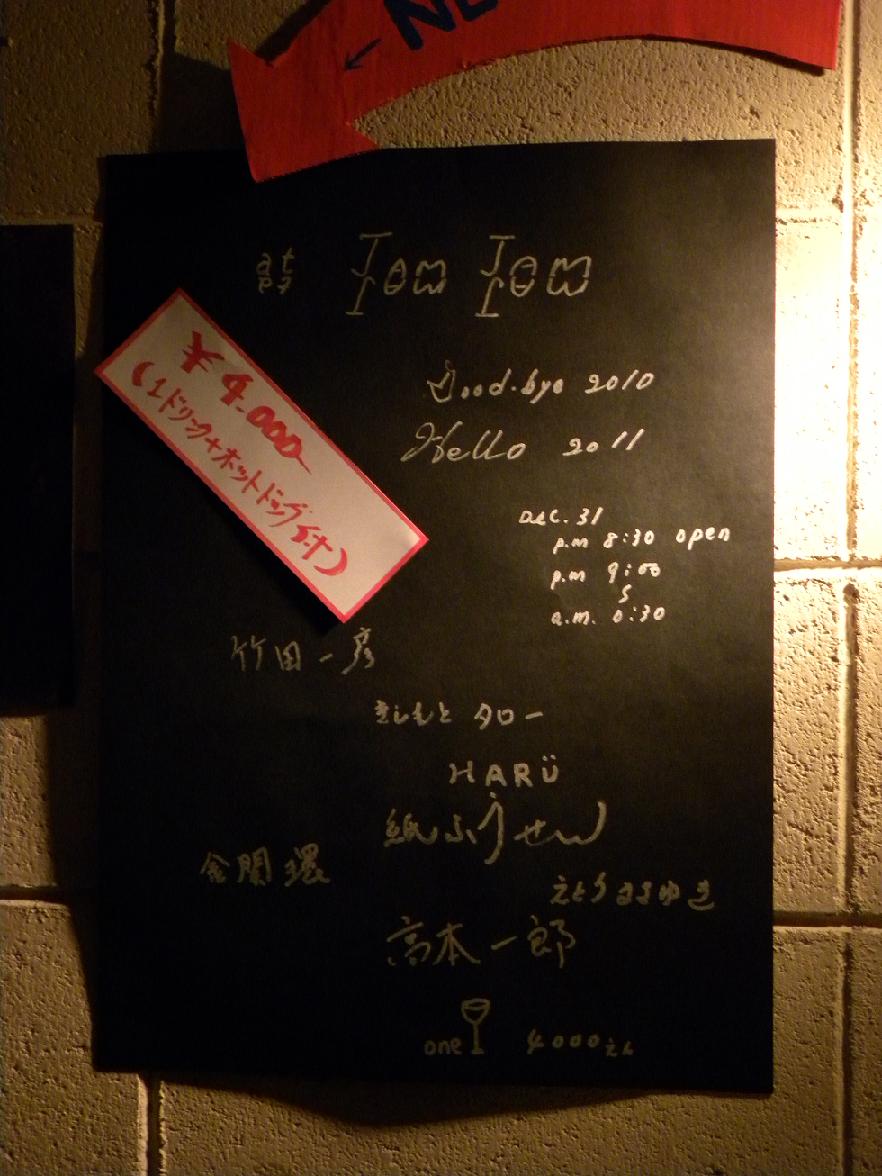 at TOM TOM
¥4.000
(1ドリンク+ホットドッグ付)
Good-bye 2010
Hello 2011
DEC. 31
p.m 8:30 open
p.m 9:00
a.m. 0:30
竹田一彦
きしもと タロー
HARÜ
紙ふうせん
金関 環
えとうまさゆき
高本一郎
one 4000えん